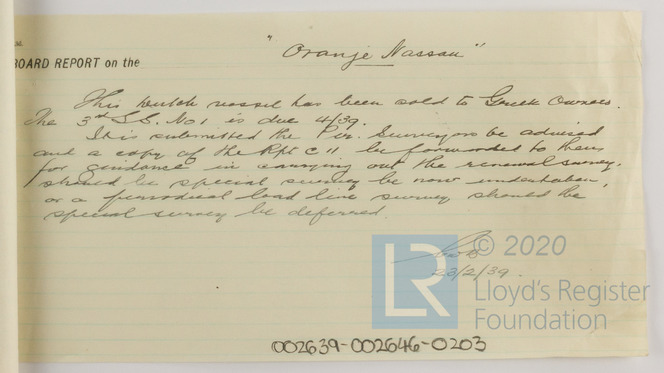 BOARD REPORT on the
"Oranje Nassau"
This Dutch vessel has been sold to Greek Owners.
The 3rd S.S. No 1 is due 4/39.
It is submitted the Pir. Surveyors be advised
and a copy of the Rpt C 11 be forwarded to them
for guidance in carrying out the renewal survey,
should the special survey be now undertaken,
or a periodical load line survey should the
special survey be deferred.
23/2/39.
© 2020
LR
Lloyd's Register
Foundation
002639-002646-0203